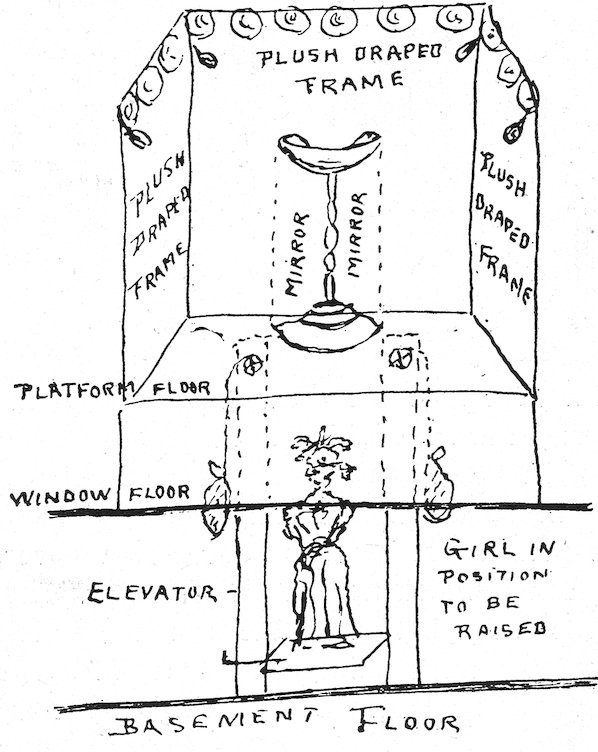 PLUSH DRAPED
FRAME
PLUSH
DRAPED
FRAME
MIRROR
MIRROR
PLUSH
DRAPED
FRAME
PLATFORM FLOOR
WINDOW FLOOR
ELEVATOR
GIRL IN
POSITION
TO BE
RAISED
BASEMENT FLOOR